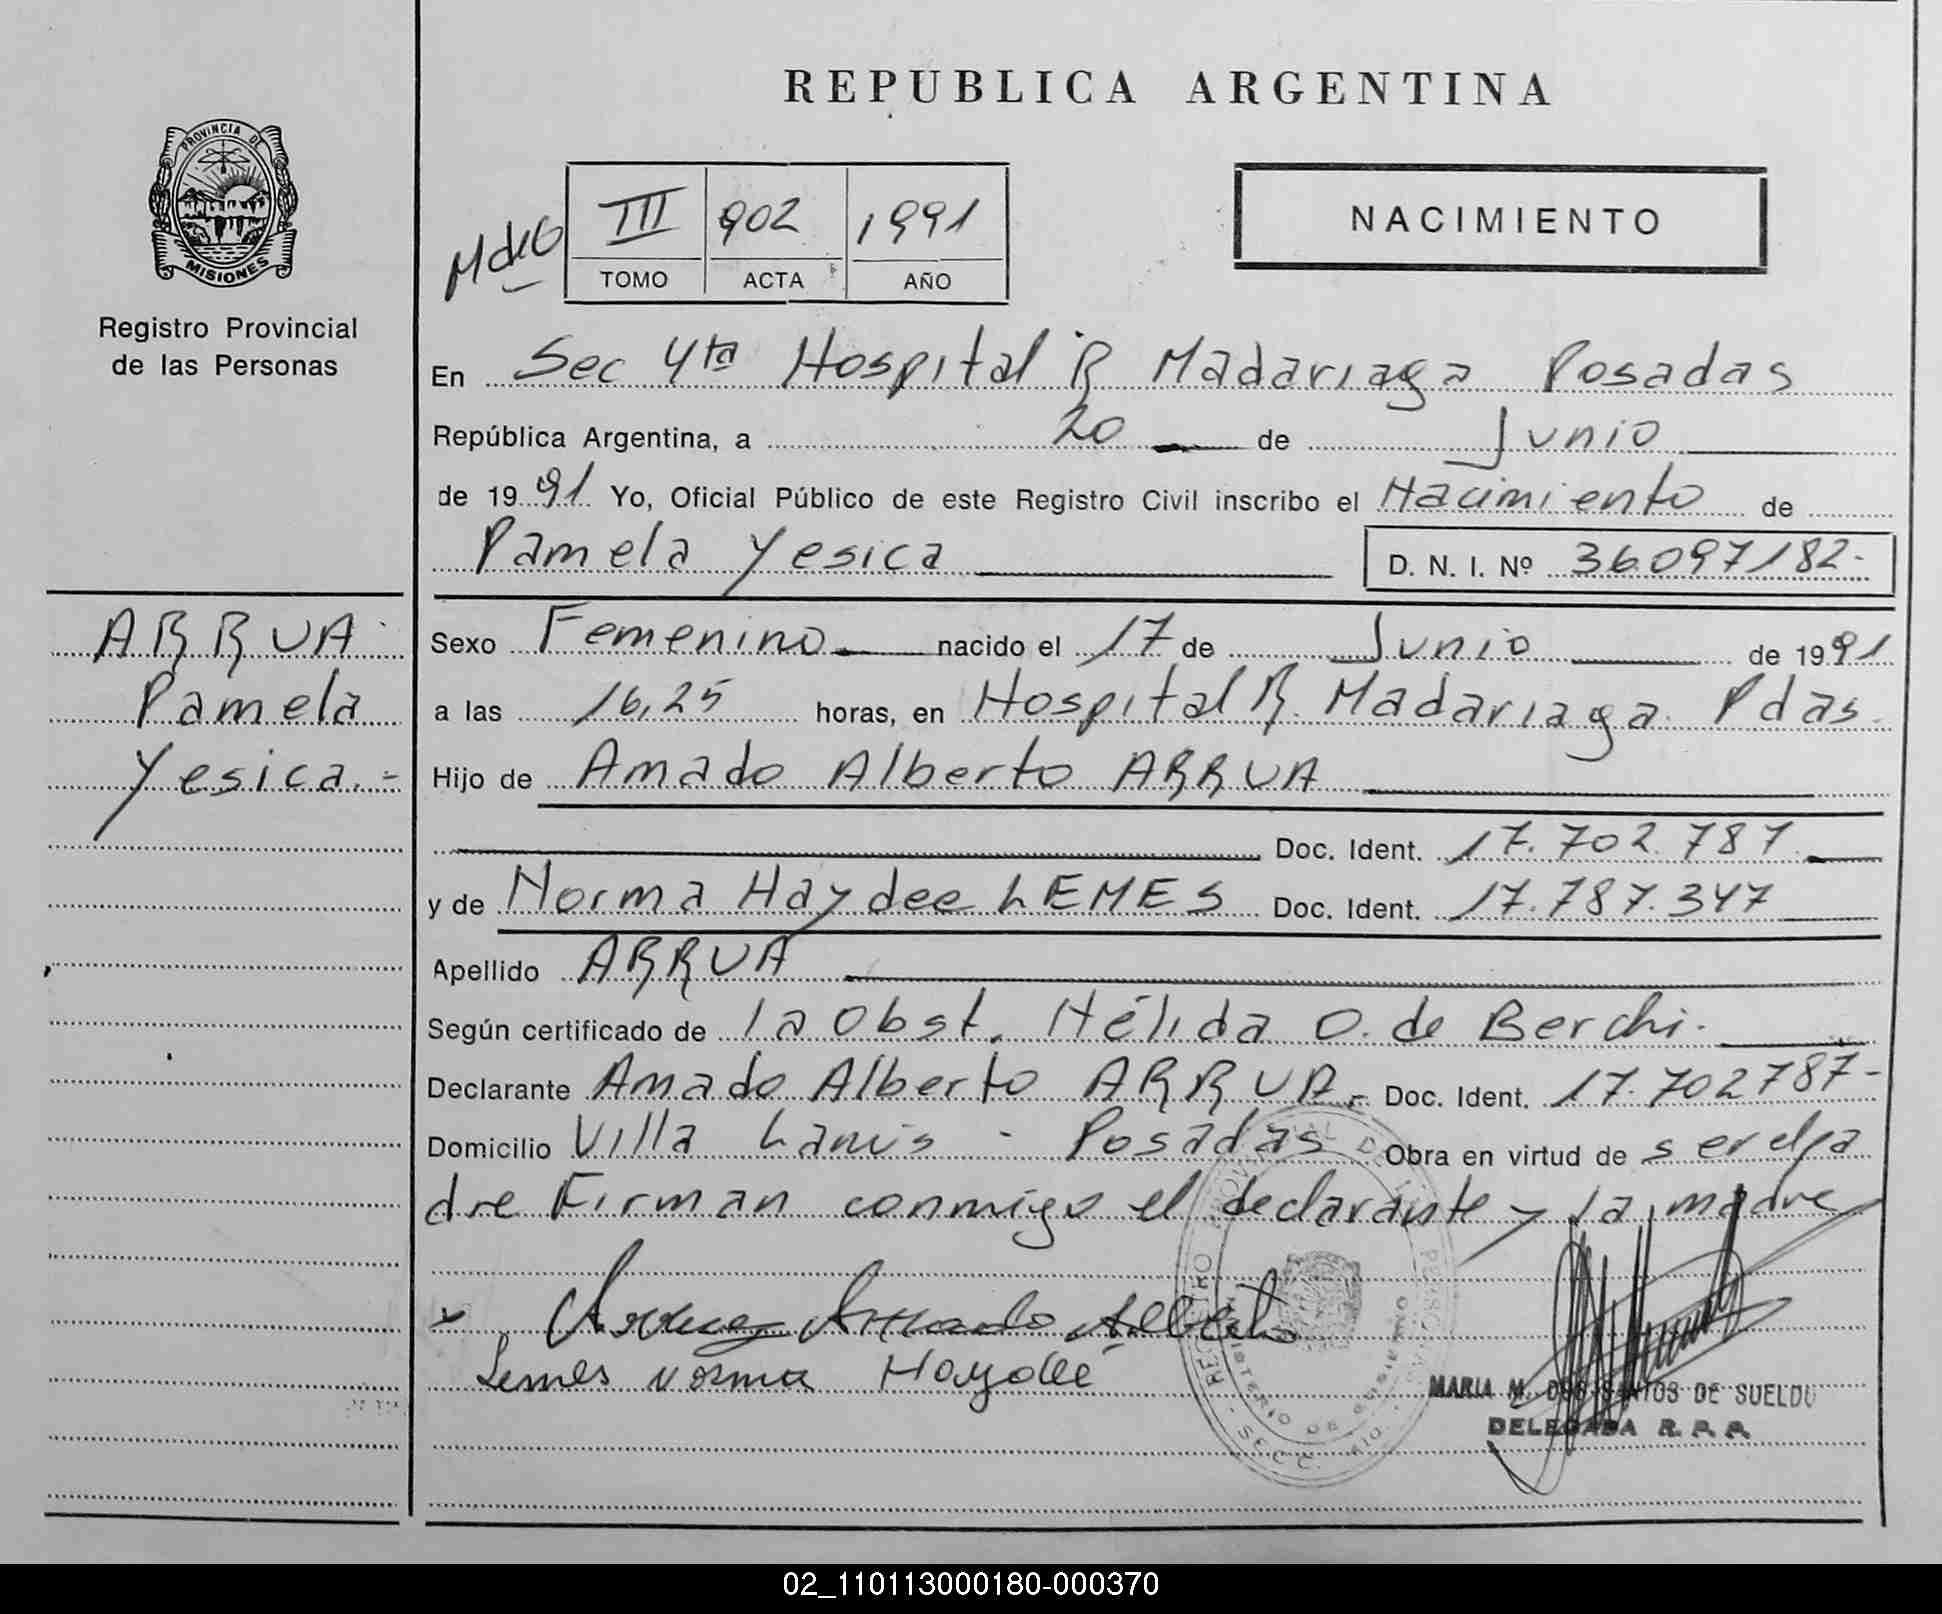 REPUBLICA ARGENTINA
PROVINCIA DE
MISIONES
Registro Provincial
de las Personas
III 902 1991
TOMO ACTA AÑO
NACIMIENTO
En Sec 4ta Hospital R Madariaga Posadas
República Argentina, a 20 de Junio
de 1991 Yo, Oficial Público de este Registro Civil inscribo el Nacimiento de
Pamela Yesica D. N. I. Nº 36.097182-
ARRUA
Pamela
Yesica.-
Sexo Femenino nacido el 17 de Junio de 1991
a las 16,25 horas, en Hospital R. Madariaga Pdas.
Hijo de Amado Alberto ARRUA
Doc. Ident. 17.702.787
y de Norma Haydee LEMES Doc. Ident. 17.787.347
Apellido ARRUA
Según certificado de la Obst. Nélida O. de Berchi.
Declarante Amado Alberto ARRUA.- Doc. Ident. 17.702787-
Domicilio Villa Lanus - Posadas Obra en virtud de ser el pa
dre Firman conmigo el declarante y la madre
x Arrua Amado Alberto
Lemes Norma Haydeé
MARIA M. DOS SANTOS DE SUELDO
DELEGADA R. P. P.
02_110113000180-000370